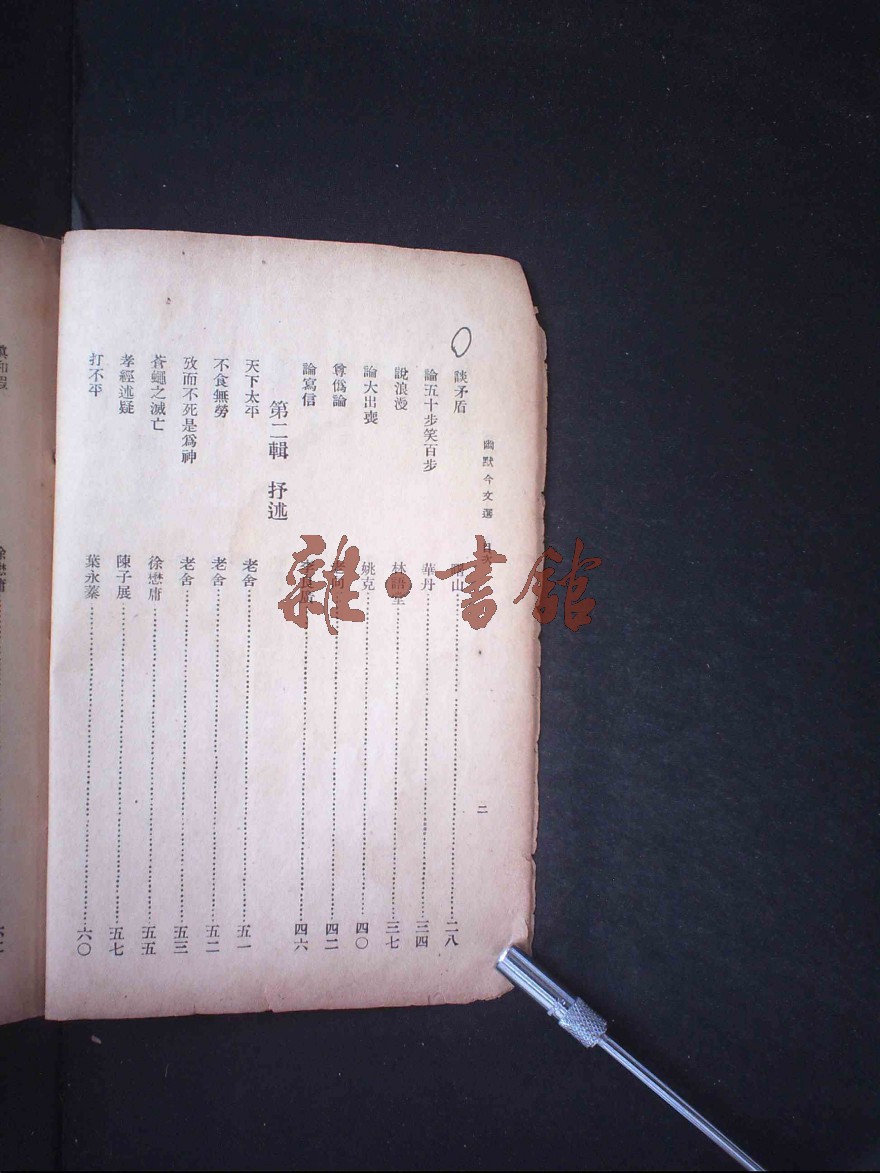 幽默今文選 目次
二
談矛盾 山……二八
論五十步笑百步 華丹……三四
說浪漫 林語堂……三七
論大出喪 姚克……四〇
尊僞論 老向……四二
論寫信 ……四六
第二輯 抒述
天下太平 老舍……五一
不食無勞 老舍……五二
攷而不死是爲神 老舍……五三
蒼蠅之滅亡 徐懋庸……五五
孝經述疑 陳子展……五七
打不平 葉永蓁……六〇
真和假 徐懋庸……六二
雜·書館